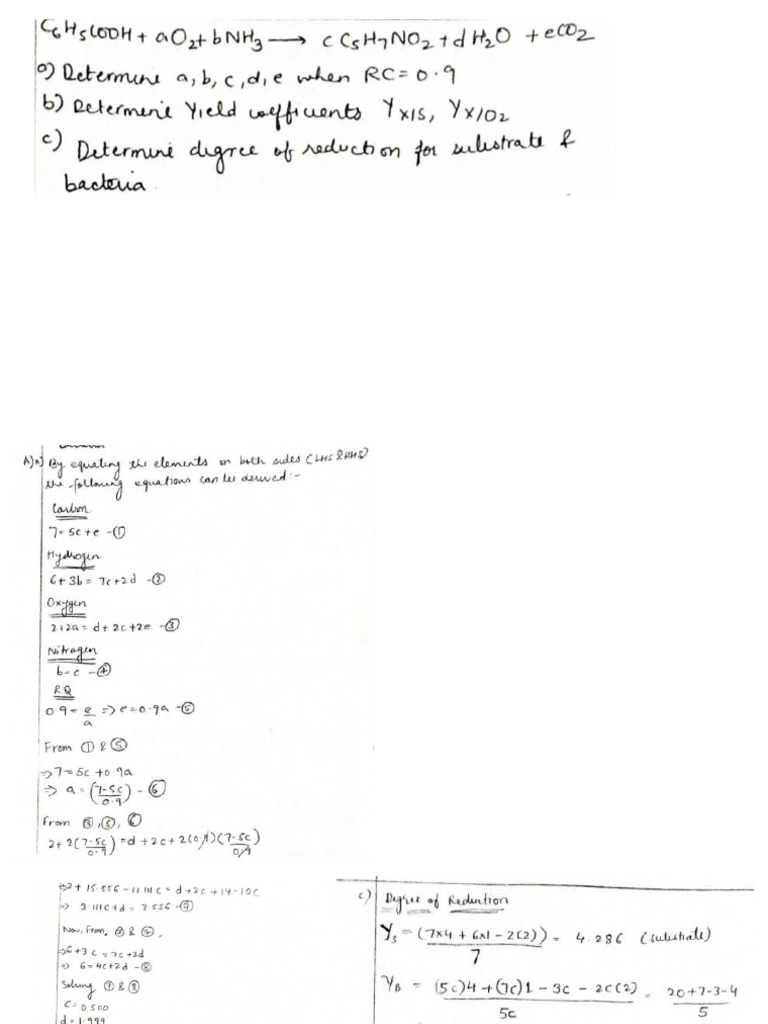 C6H5COOH + aO2 + bNH3 → cC5H7NO2 + dH2O + eCO2
a) Determine a, b, c, d, e when RC = 0.9
b) Determine Yield coefficients Yx/s, Yx/O2
c) Determine degree of reduction for substrate &
bacteria
A) a) By equating the elements on both sides (LHS & RHS)
the following equations can be derived :-
Carbon
7 = 5c + e - ①
Hydrogen
6 + 3b = 7c + 2d - ②
Oxygen
2 + 2a = d + 2c + 2e - ③
Nitrogen
b = c - ④
RQ
0.9 = e/a => e = 0.9a - ⑤
From ① & ⑤
=> 7 = 5c + 0.9a
=> a = (7-5c/0.9) - ⑥
From ③, ⑤, ⑥
2 + 2(7-5c/0.9) = d + 2c + 2(0.9)(7-5c/0.9)
=> 2 + 15.556 - 11.111c = d + 2c + 14 - 10c
=> 3.111c + d = 3.556 - ⑦
Now, From, ② & ④,
=> 6 + 3c = 7c + 2d
=> 6 = 4c + 2d - ⑧
Solving ⑦ & ⑧
c = 0.500
d = 1.999
c) Degree of Reduction
γs = (7x4 + 6x1 - 2(2))/7 = 4.286 (substrate)
γB = (5c)4 + (7c)1 - 3c - 2c(2)/5c = 20+7-3-4/5